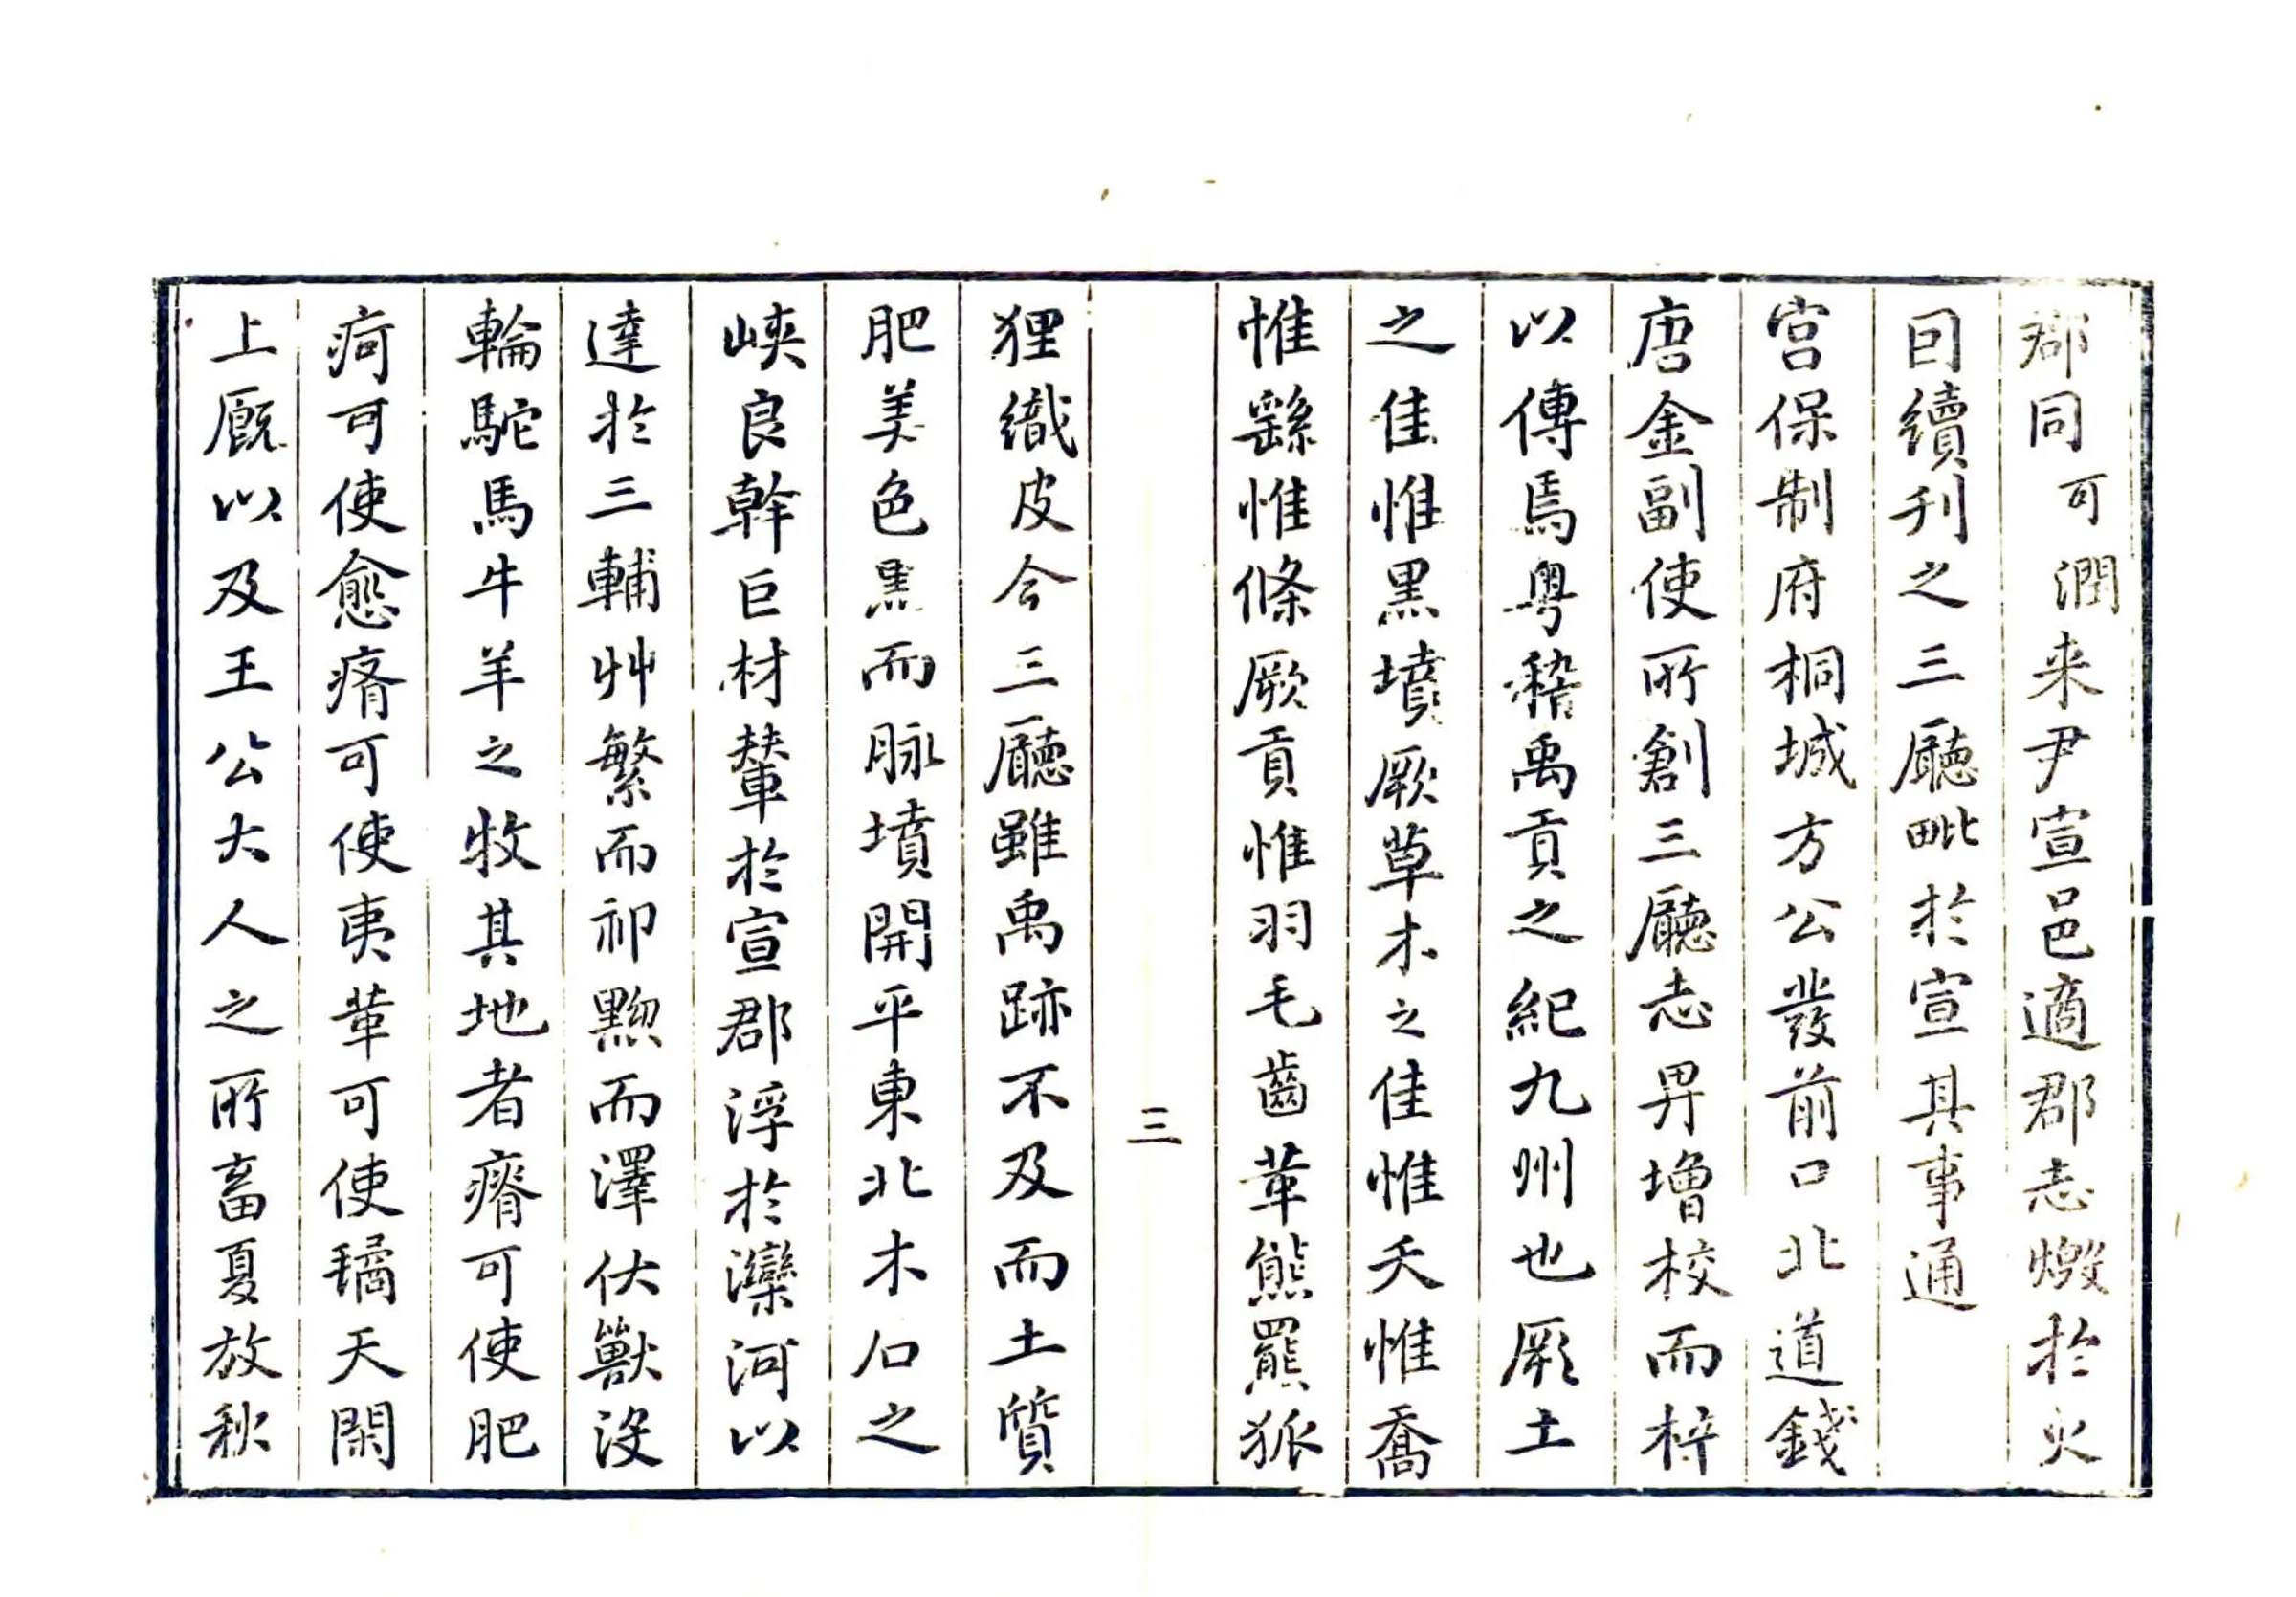 郡同可潤来尹宣邑適郡志燬於火
因續刋之三廳毗於宣其事通
宫保制府桐城方公發前口北道錢
唐金副使所創三廳志畀增校而梓
以傳焉粤稽禹貢之紀九州也厥土
之佳惟黒墳厥草木之佳惟夭惟喬
惟繇惟條厥貢惟羽毛齒革熊羆狐
三
狸織皮今三廳雖禹跡不及而土質
肥美色黒而脉墳開平東北木石之
峽良幹巨材輦於宣郡浮於灤河以
達於三輔艸繁而祁黝而澤伏獸没
輪駝馬牛羊之牧其地者瘠可使肥
疴可使愈瘠可使夷革可使驈天閑
上厩以及王公大人之所畜夏放秋